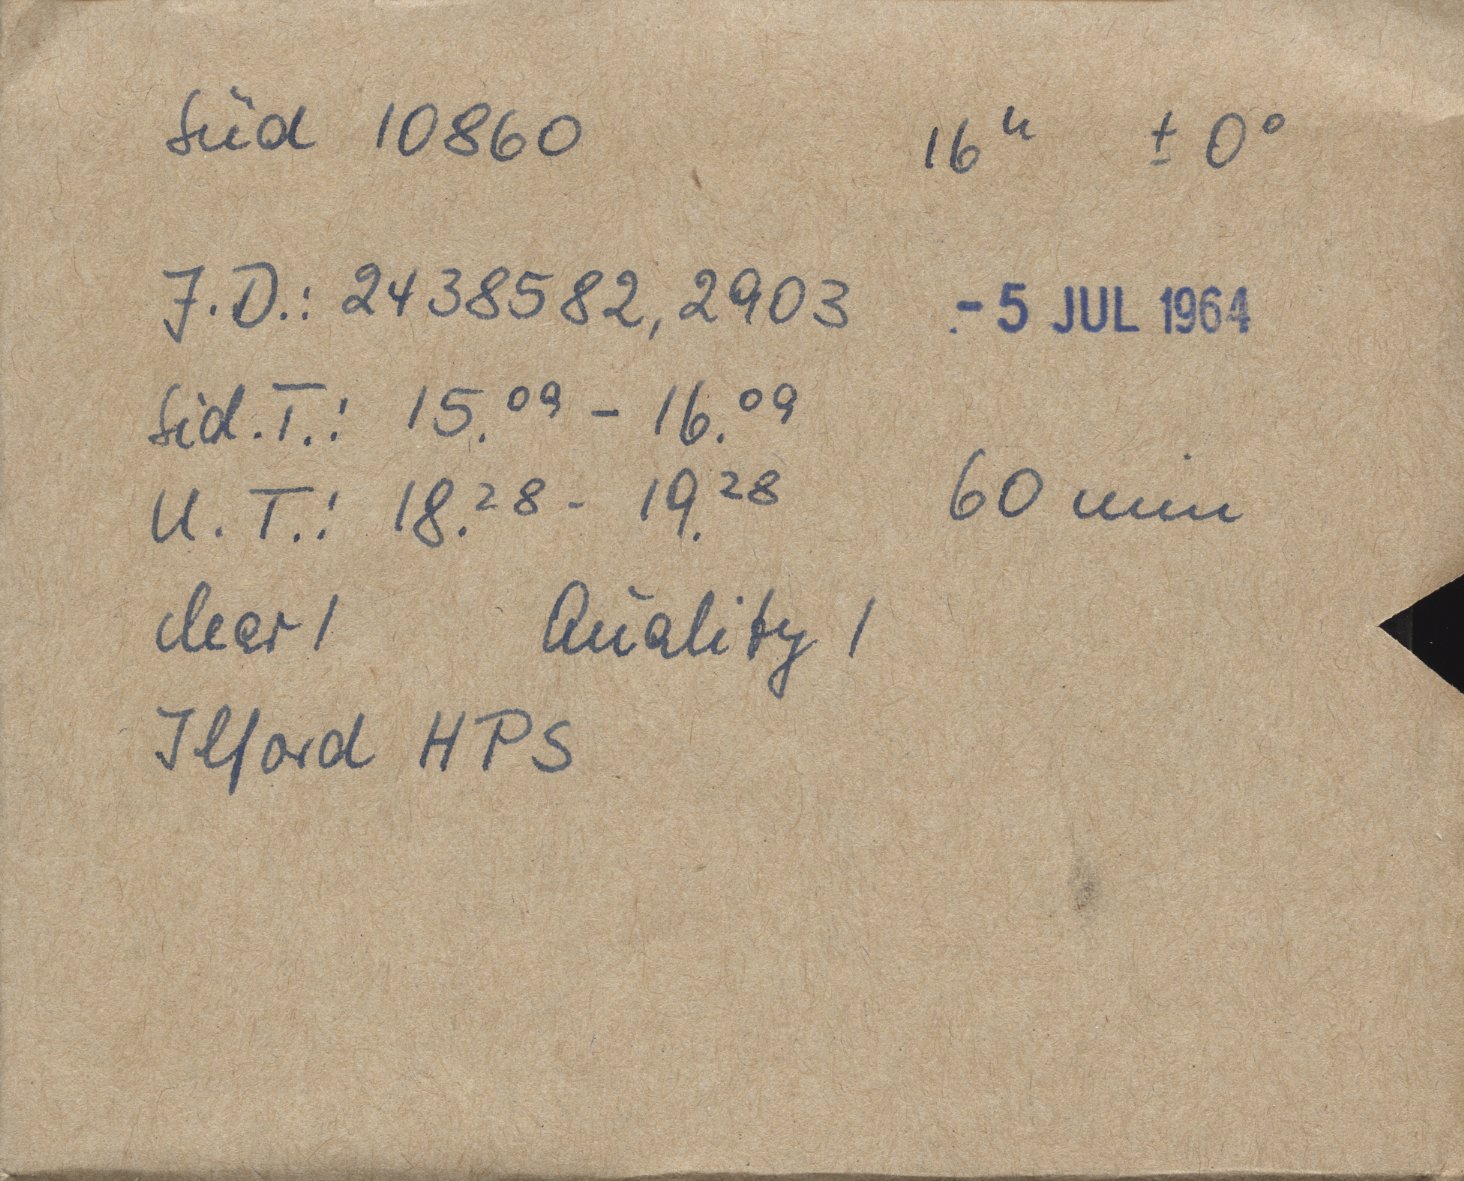 Süd 10860 16ʰ ± 0°
J.D.: 2438582,2903 - 5 JUL 1964
Sid.T.: 15.⁰⁹ – 16.⁰⁹
U.T.: 18.²⁸ - 19.²⁸ 60 min
clear 1 Quality 1
Ilford HPS